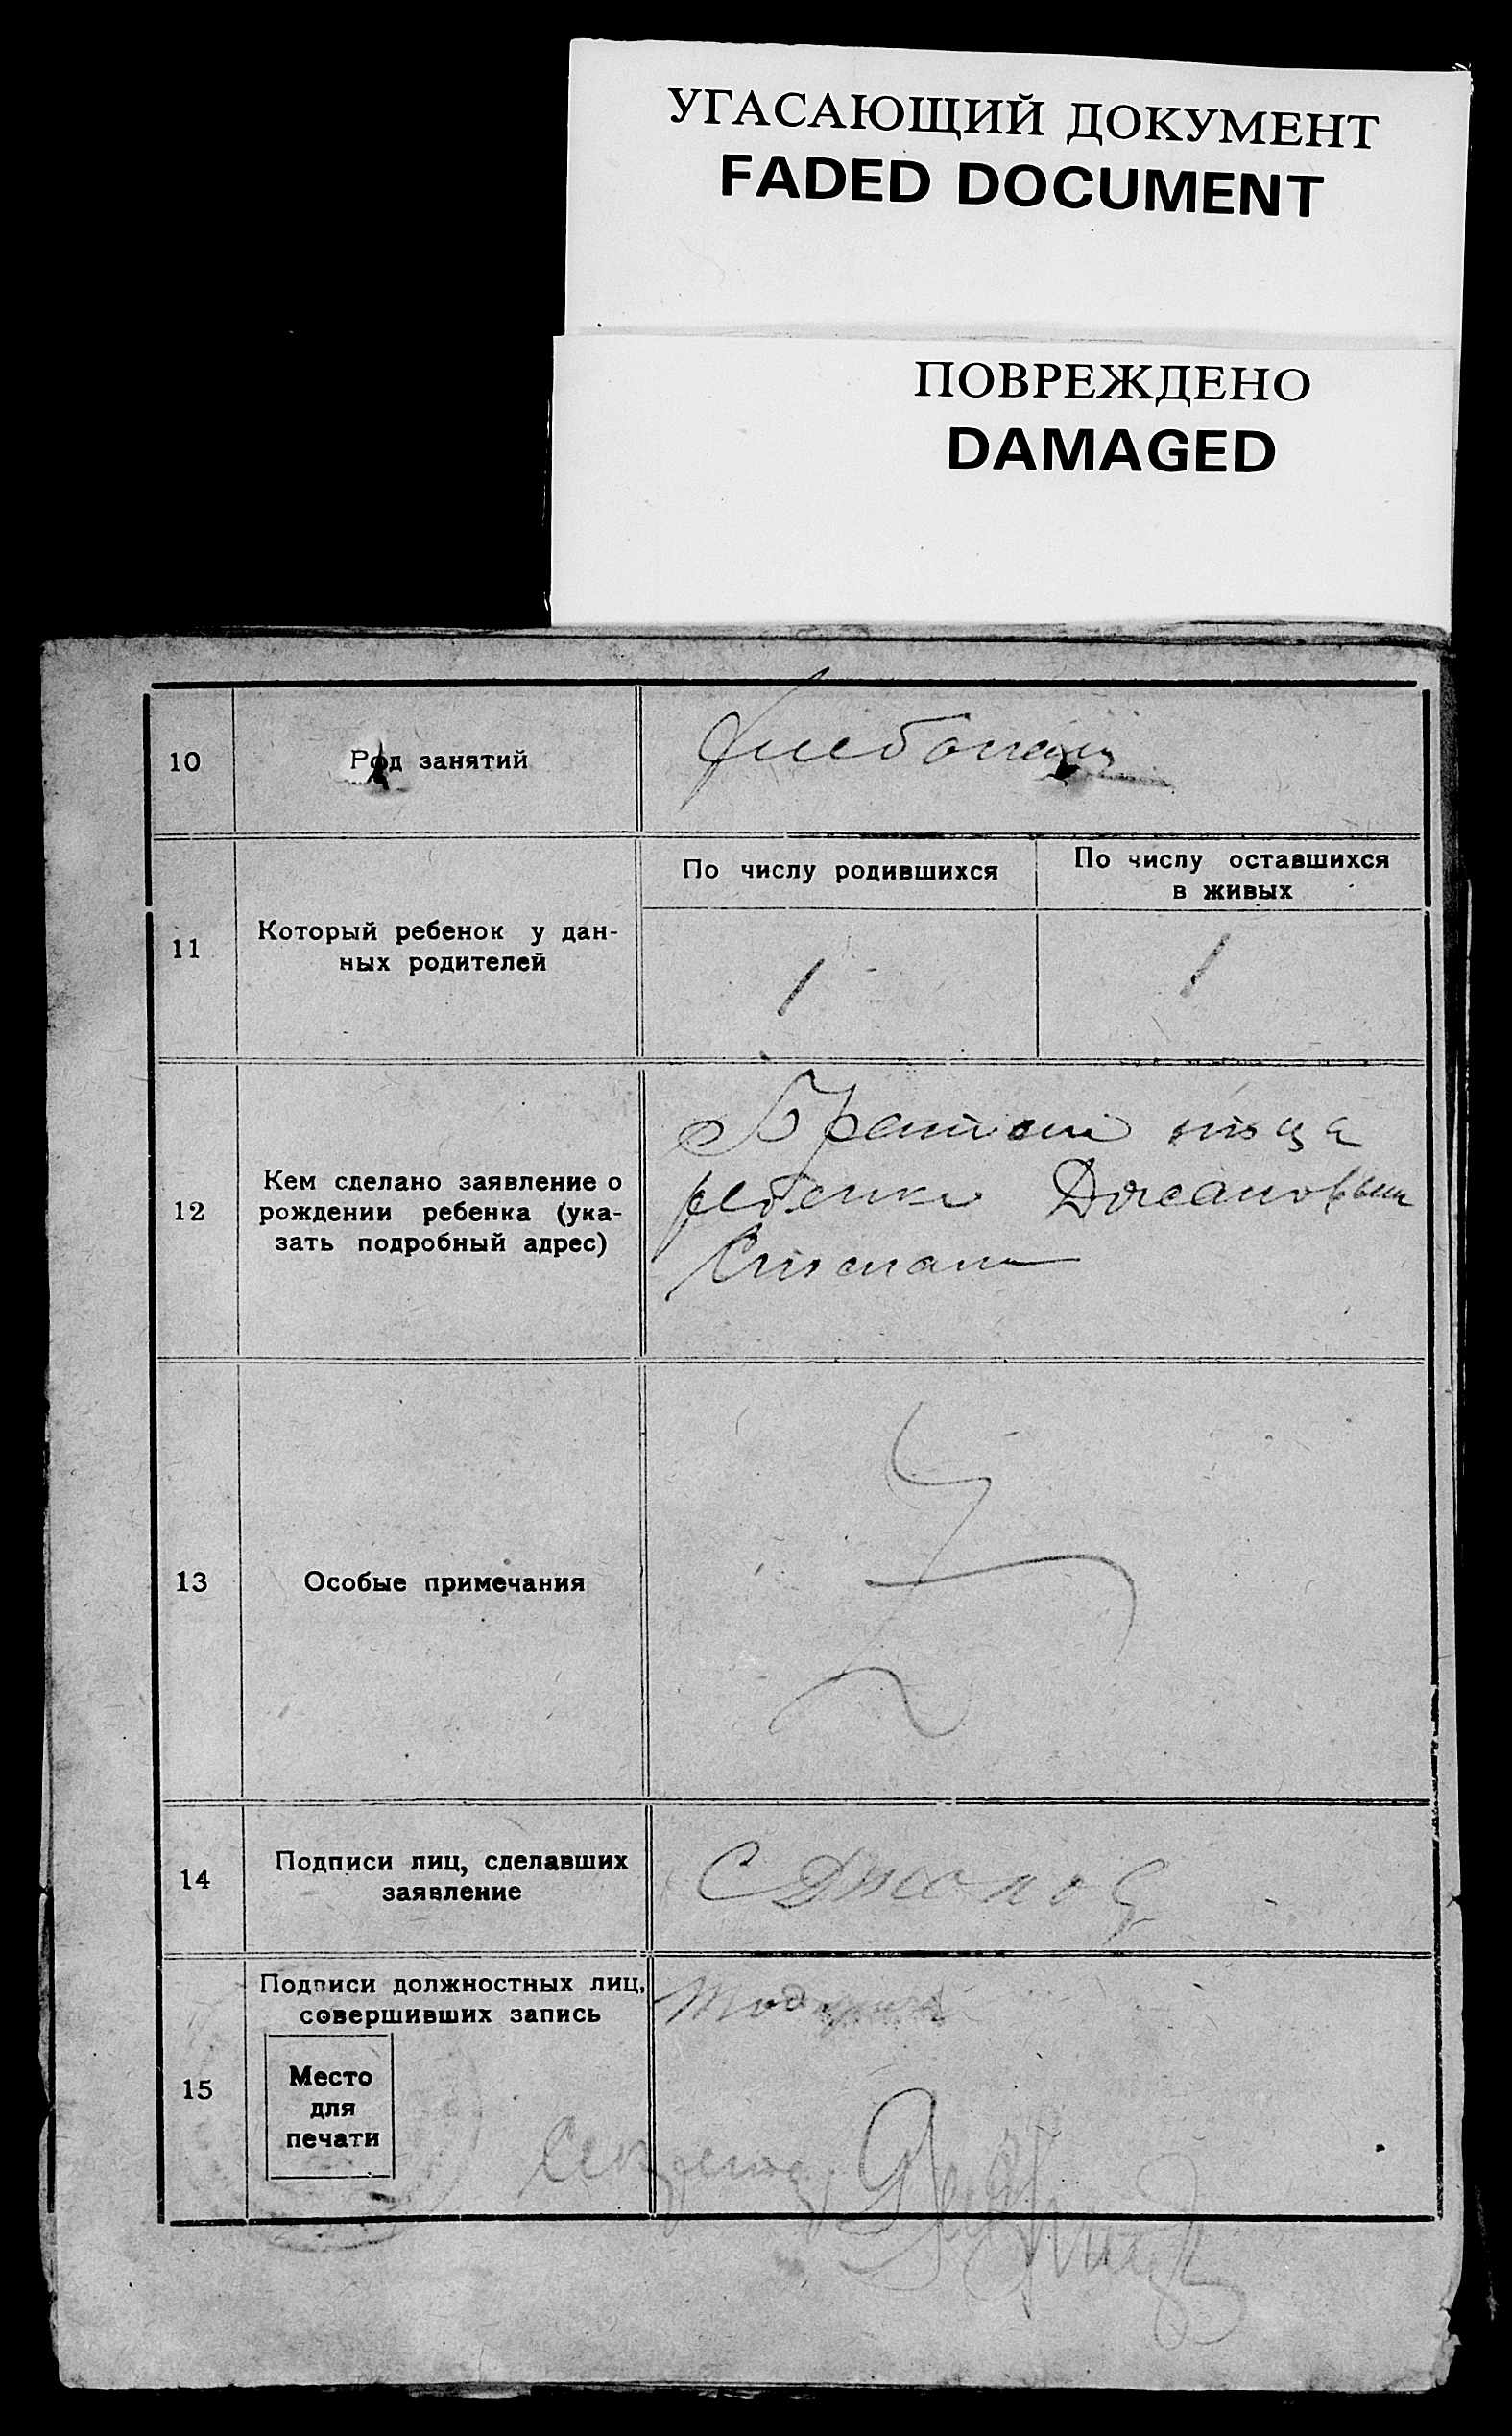 УГАСАЮЩИЙ ДОКУМЕНТ
FADED DOCUMENT
ПОВРЕЖДЕНО
DAMAGED
10
Род занятий
Хлебопаш
11
Который ребенок у дан-
ных родителей
По числу родившихся
По числу оставшихся
в живых
1
1
12
Кем сделано заявление о
рождении ребенка (ука-
зать подробный адрес)
Братом отца
ребенка
13
Особые примечания
14
Подписи лиц, сделавших
заявление
15
Подписи должностных лиц,
совершивших запись
Место
для
печати